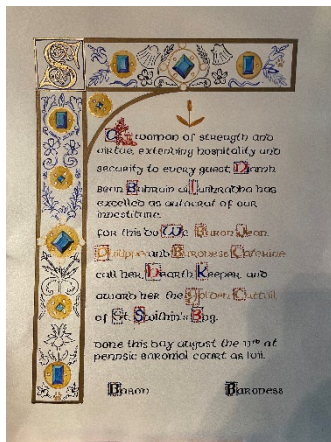 S
A woman of strength and
virtue, extending hospitality and
security to every guest
has
excelled as autocrat of our
investiture.
For this do We Baron Jean
Philippe and Baroness Caterine
call her Hearth Keeper and
award her the Golden Cattail
of St. Swithin's Bog.
Done this day august the 11th at
pennsic Baronial court as lvii.
Baron Baroness